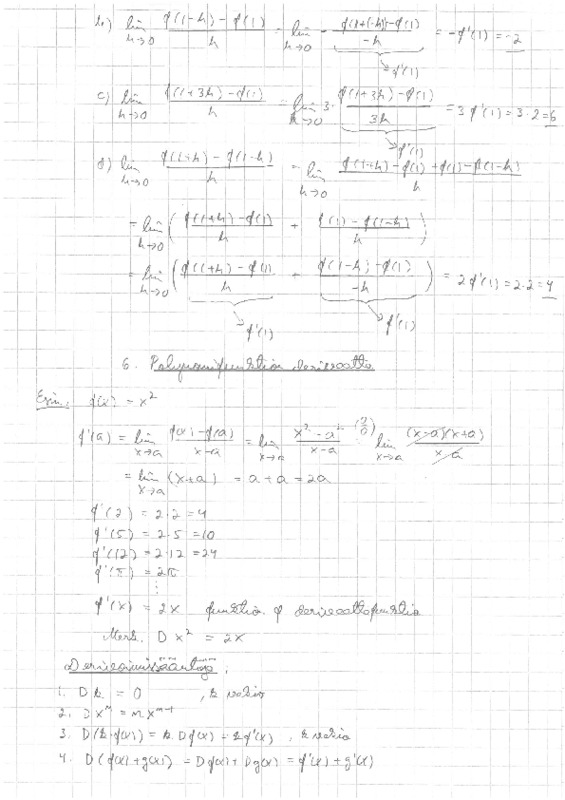 b) lim h→0 (f(1-h) - f(1))/h = lim h→0 - (f(1+(-h)) - f(1))/(-h) = -f'(1) = -2
→ f'(1)
c) lim h→0 (f(1+3h) - f(1))/h = lim h→0 3· (f(1+3h) - f(1))/(3h) = 3 f'(1) = 3·2 = 6
→ f'(1)
d) lim h→0 (f(1+h) - f(1-h))/h = lim h→0 (f(1+h) - f(1) + f(1) - f(1-h))/h
= lim h→0 ( (f(1+h) - f(1))/h + (f(1) - f(1-h))/h )
= lim h→0 ( (f(1+h) - f(1))/h + (f(1-h) - f(1))/(-h) ) = 2f'(1) = 2·2 = 4
→ f'(1) → f'(1)
6. Polynomifunktion derivaatta
Esim. f(x) = x²
f'(a) = lim x→a (f(x) - f(a))/(x-a) = lim x→a (x² - a²)/(x-a) (0/0) = lim x→a (x-a)(x+a)/(x-a)
= lim x→a (x+a) = a + a = 2a
f'(2) = 2·2 = 4
f'(5) = 2·5 = 10
f'(12) = 2·12 = 24
f'(π) = 2π
⋮
f'(x) = 2x funktion f derivaattafunktio
Merk. D x² = 2x
Derivoimissääntöjä:
1. D k = 0 , k vakio
2. D xⁿ = n xⁿ⁻¹
3. D(k·f(x)) = k Df(x) = k f'(x) , k vakio
4. D(f(x)+g(x)) = Df(x) + Dg(x) = f'(x) + g'(x)